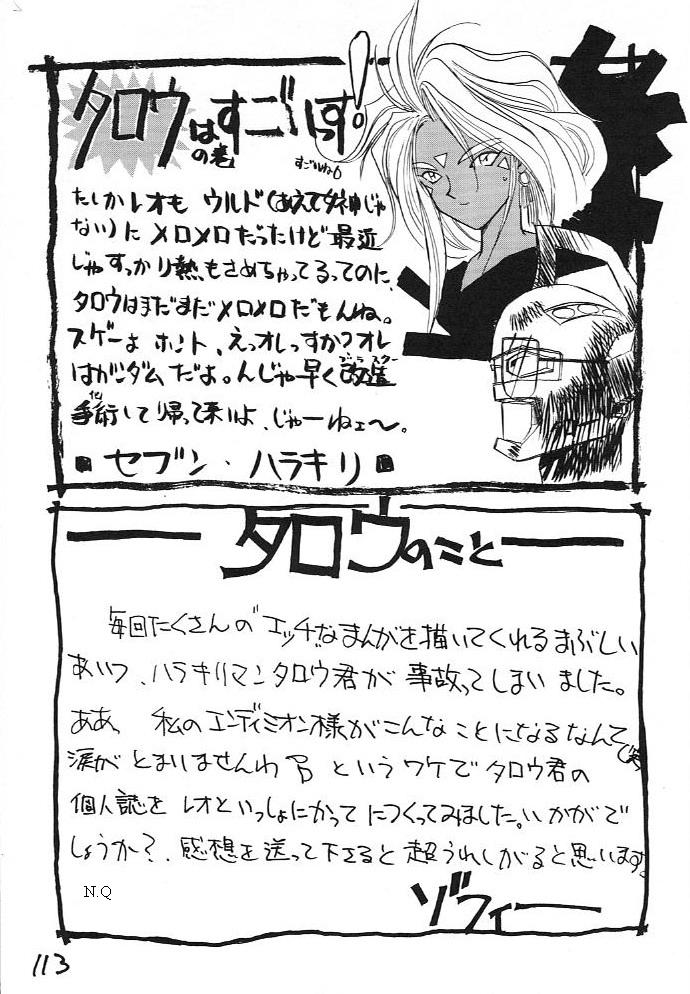 タロウはすごいっす!
の巻
すごいねっ
たしかレオも ウルド(あえて女神じゃ
ない)に メロメロだったけど 最近
じゃすっかり熱もさめちゃってるってのに、
タロウはまだまだメロメロだもんね。
スゲーよ ホント、えっオレっすか?オレ
はガンダムだよ。んじゃ早く改造
手術して帰って来いよ、じゃーねェ〜。
■セブン・ハラキリ■
タロウのこと
毎回たくさんの"エッチ"なまんがを描いてくれるまぶしい
あいつ、ハラキリマンタロウ君が 事故ってしまいました。
ああ、私のエンディミオン様がこんなことになるなんて
涙が とまりませんわ(笑) というワケでタロウ君の
個人誌を レオといっしょにかってにつくってみました。いかがで
しょうか?、感想を送って下さると 超うれしがると思います。
N.Q
ゾフィー
113